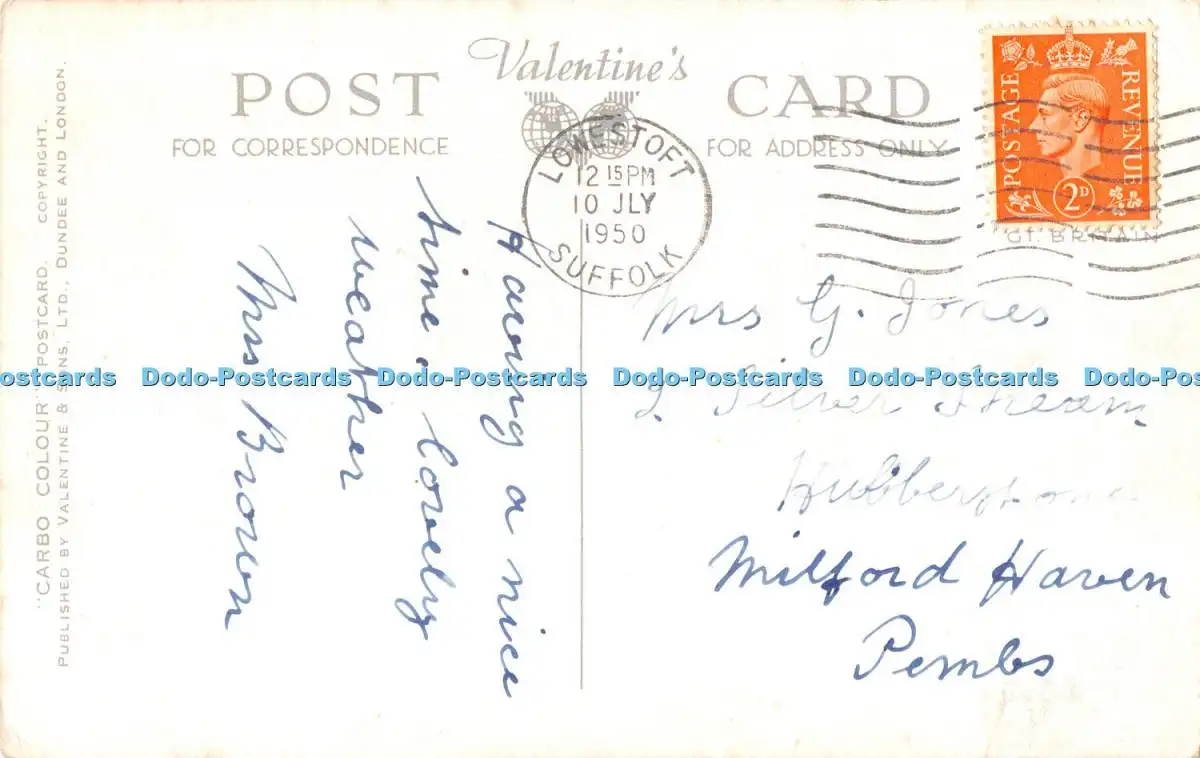 Valentine's
POST CARD
FOR CORRESPONDENCE
FOR ADDRESS ONLY
"CARBO COLOUR" POSTCARD. COPYRIGHT.
PUBLISHED BY VALENTINE & SONS, LTD., DUNDEE AND LONDON.
LOWESTOFT
12 15 PM
10 JLY
1950
SUFFOLK
POSTAGE
REVENUE
2D
GT. BRITAIN
Having a nice
time. lovely
weather
Mrs Brown
Mrs G. Jones
Silver Stream,
Hubberstone
Milford Haven
Pembs
Dodo-Postcards Dodo-Postcards Dodo-Postcards Dodo-Postcards Dodo-Postcards